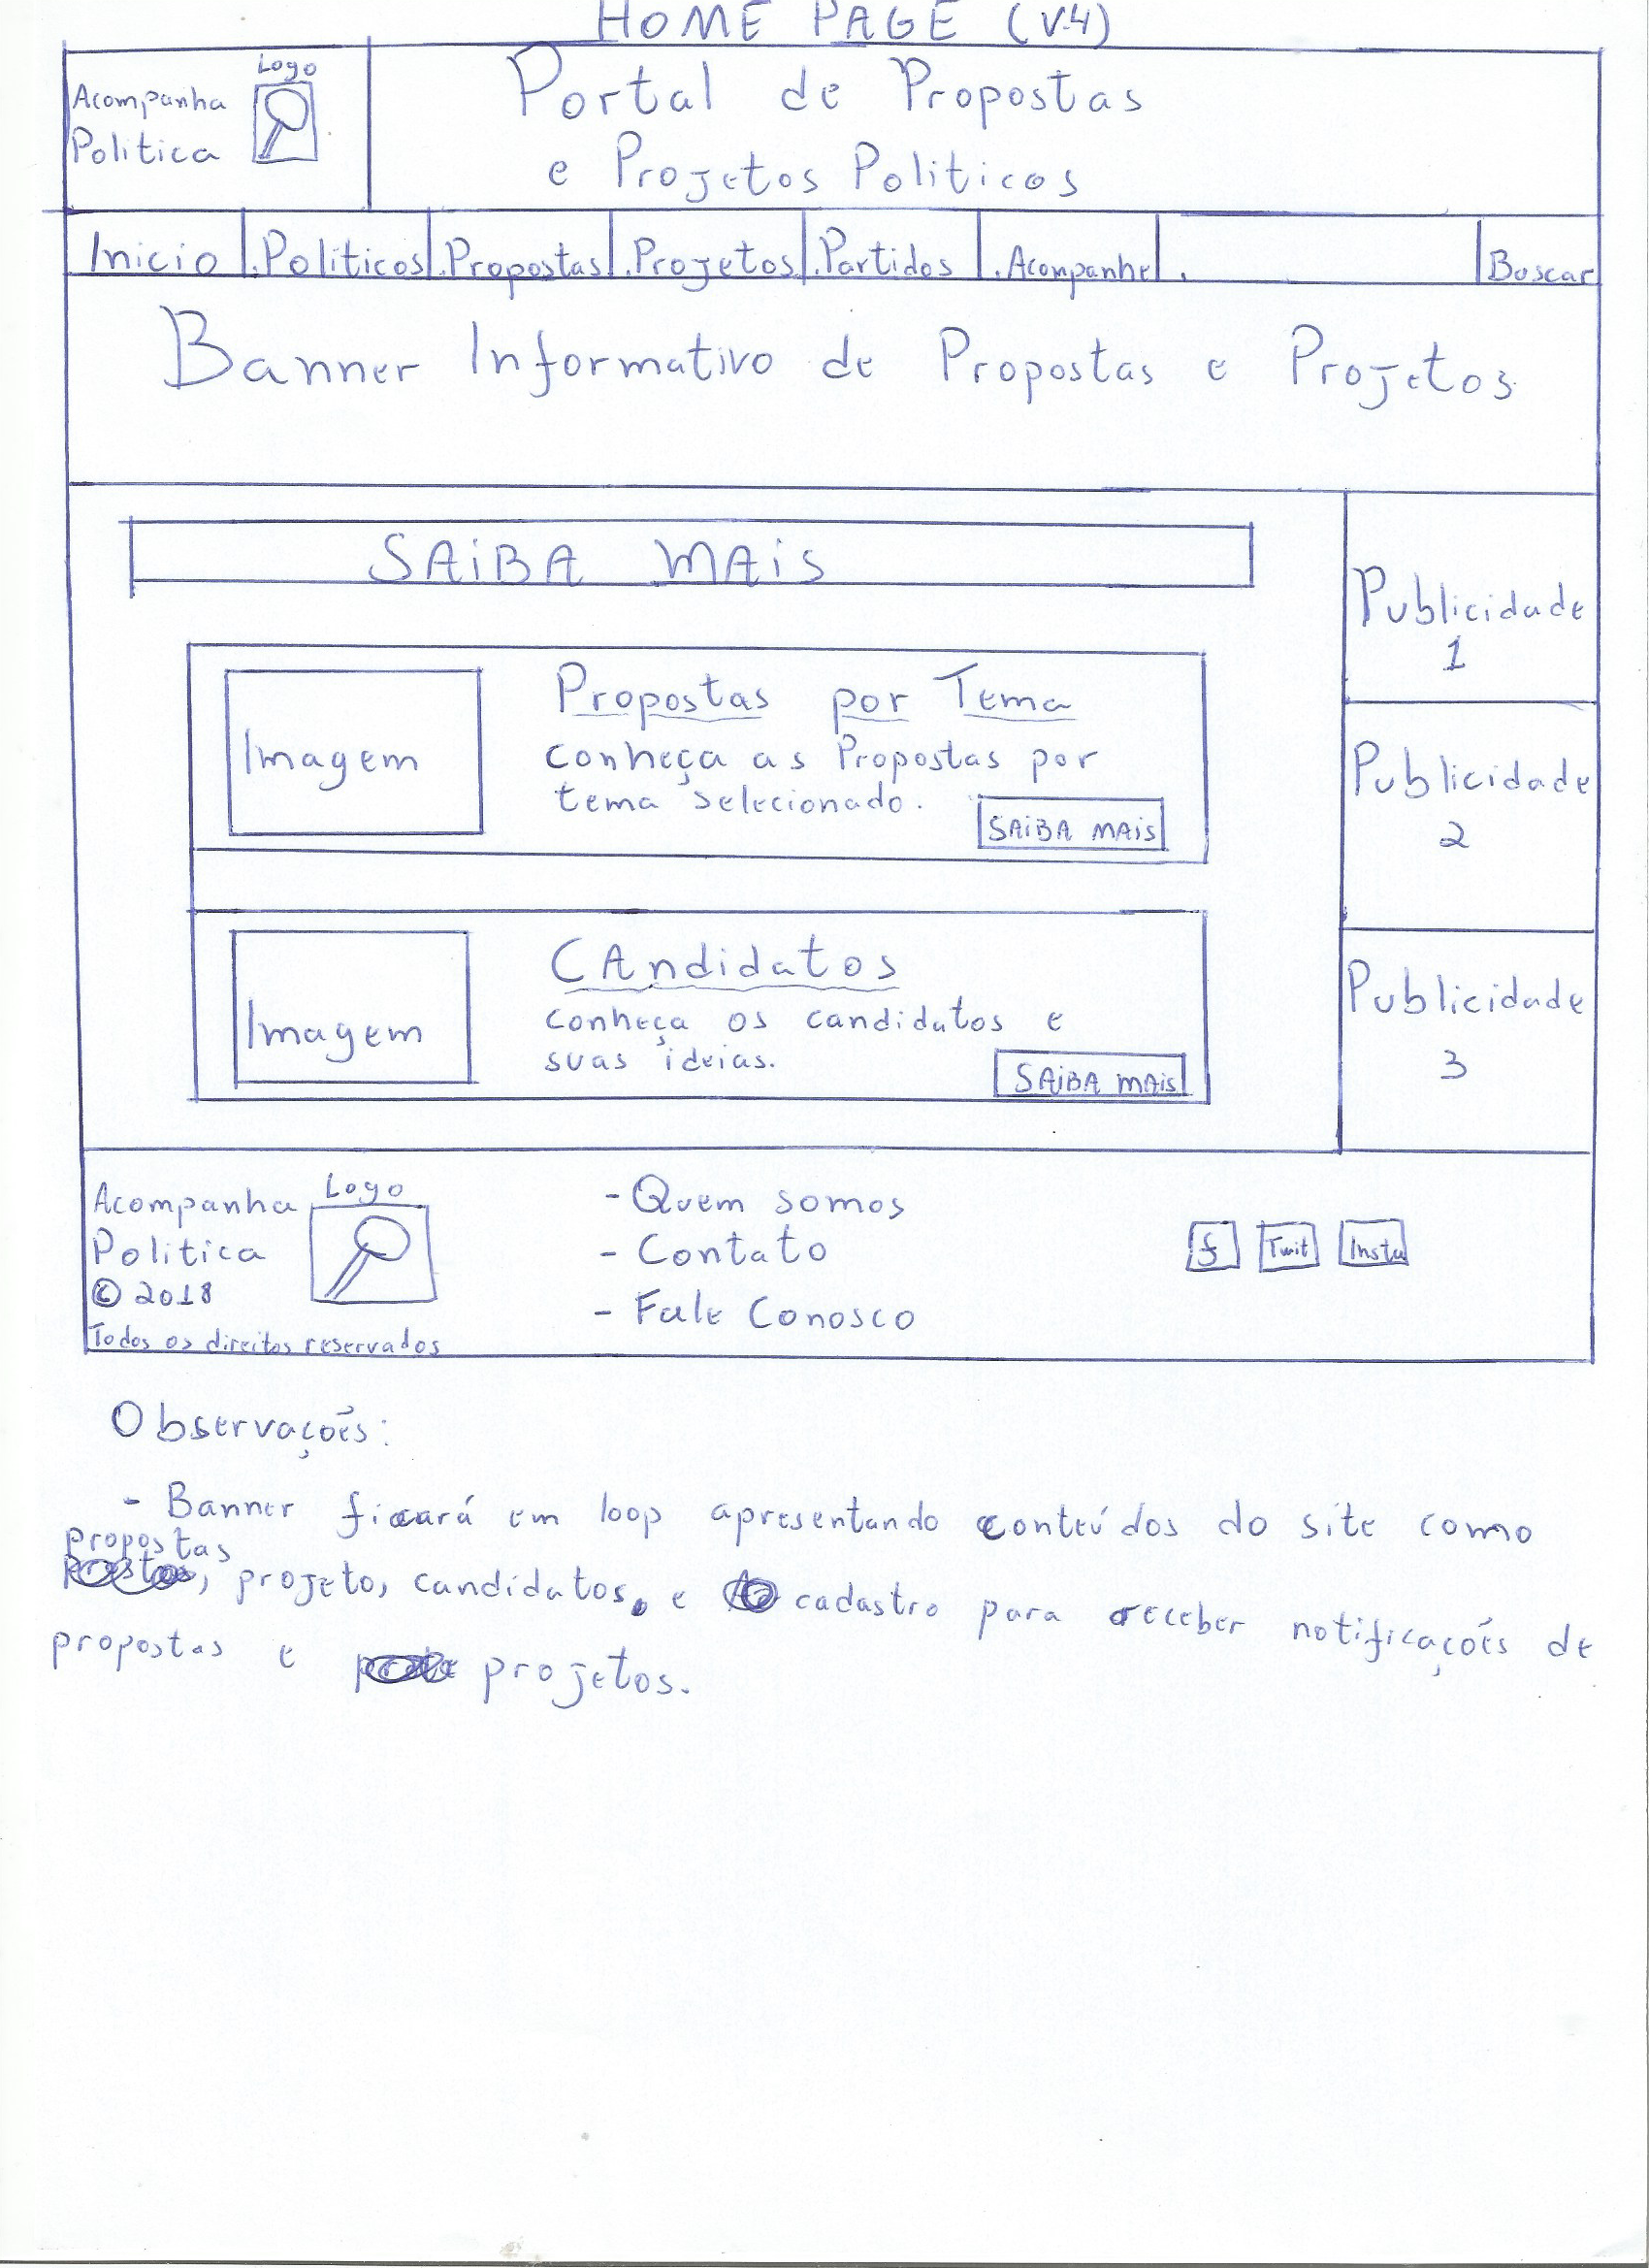 HOME PAGE (V.4)
Logo
Acompanha
Politica
Portal de Propostas
e Projetos Politicos
Inicio
Politicos
Propostas
Projetos
Partidos
Acompanhe
Buscar
Banner Informativo de Propostas e Projetos
SAiBA MAiS
Imagem
Propostas por Tema
conheça as Propostas por
tema selecionado.
SAiBA MAiS
Imagem
CAndidatos
conheça os candidatos e
suas ideias.
SAiBA MAiS
Publicidade
1
Publicidade
2
Publicidade
3
Acompanha
Politica
© 2018
Todos os direitos reservados
Logo
- Quem somos
- Contato
- Fale Conosco
f
Twit
Insta
Observações:
- Banner ficará em loop apresentando conteúdos do site como
propostas
, projeto, candidatos, e cadastro para receber notificações de
propostas e projetos.